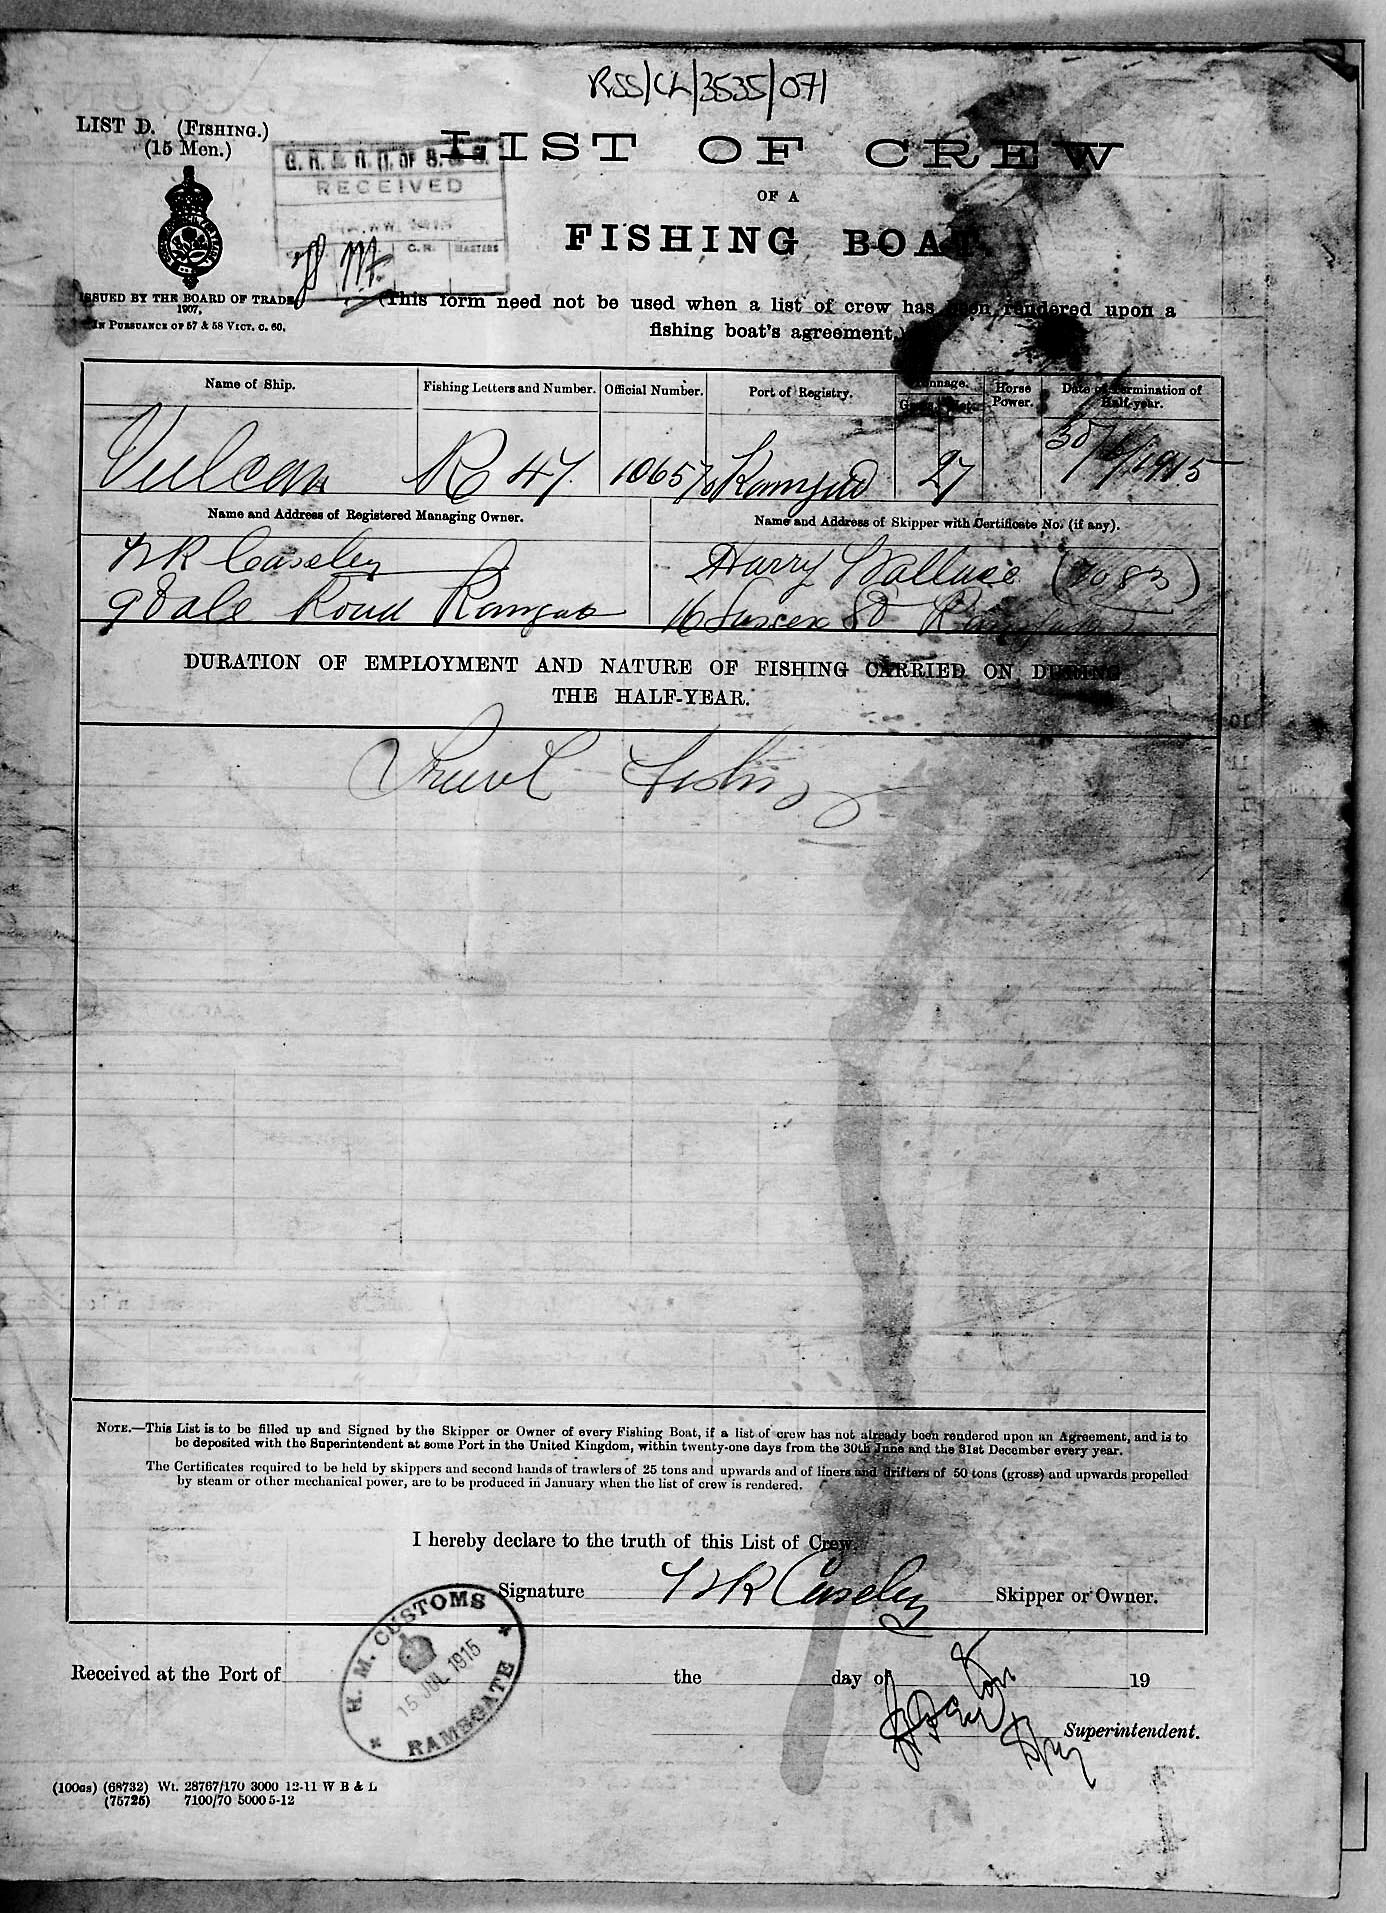 RSS/CL/3535/071
LIST D. (FISHING.)
(15 Men.)
LIST OF CREW
OF A
FISHING BOAT.
RECEIVED
C.R. MASTERS
ISSUED BY THE BOARD OF TRADE,
1907,
IN PURSUANCE OF 57 & 58 VICT. C. 60.
(This form need not be used when a list of crew has been rendered upon a
fishing boat's agreement.)
Name of Ship. Fishing Letters and Number. Official Number. Port of Registry. Tonnage. Horse Power. Date of Termination of Half-year.
Gross. Nett.
Vulcan R 47. 106576 Ramsgate 27 30/6/1915
Name and Address of Registered Managing Owner. Name and Address of Skipper with Certificate No. (if any).
Caseley Harry Wallace
9 Dale Road Ramsgate 16 Sussex St Ramsgate
DURATION OF EMPLOYMENT AND NATURE OF FISHING CARRIED ON DURING
THE HALF-YEAR.
Trawl Fishing
NOTE.—This List is to be filled up and Signed by the Skipper or Owner of every Fishing Boat, if a list of crew has not already been rendered upon an Agreement, and is to
be deposited with the Superintendent at some Port in the United Kingdom, within twenty-one days from the 30th June and the 31st December every year.
The Certificates required to be held by skippers and second hands of trawlers of 25 tons and upwards and of liners and drifters of 50 tons (gross) and upwards propelled
by steam or other mechanical power, are to be produced in January when the list of crew is rendered.
I hereby declare to the truth of this List of Crew.
Signature Caseley Skipper or Owner.
H. M. CUSTOMS
15 JUL 1915
RAMSGATE
Received at the Port of the day of 19
Superintendent.
(100gs) (68732) Wt. 28767/170 3000 12-11 W B & L
(75725) 7100/70 5000 5-12